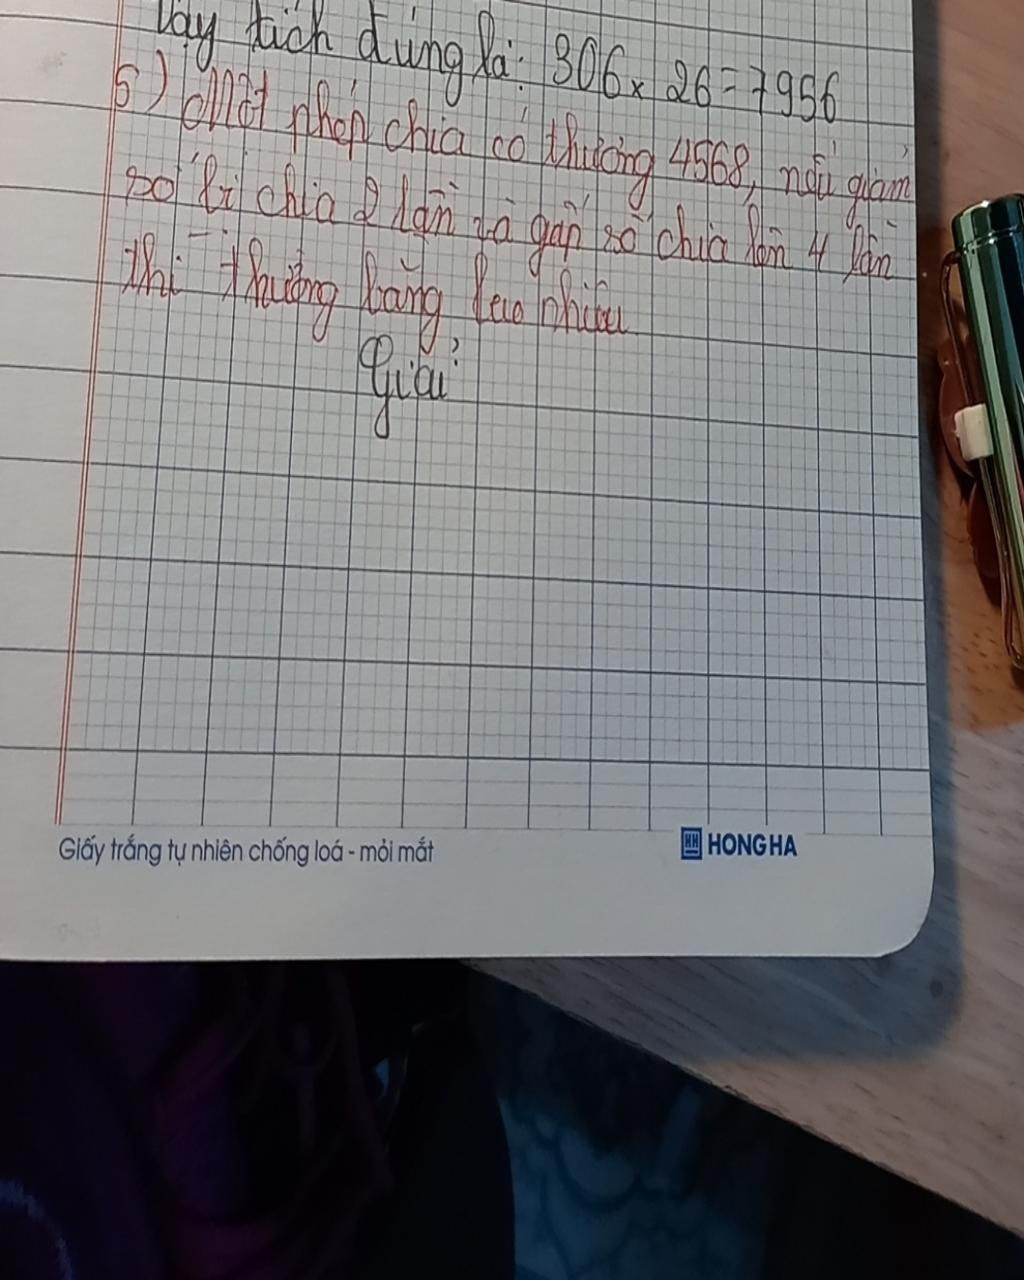 Vậy tích đúng là: 306 x 26 = 7956
5) Một phép chia có thương 4568, nếu giảm
số bị chia 2 lần và gấp số chia lên 4 lần
thì thương bằng bao nhiêu
Giải
Giấy trắng tự nhiên chống loá - mỏi mắt
HH HONG HA